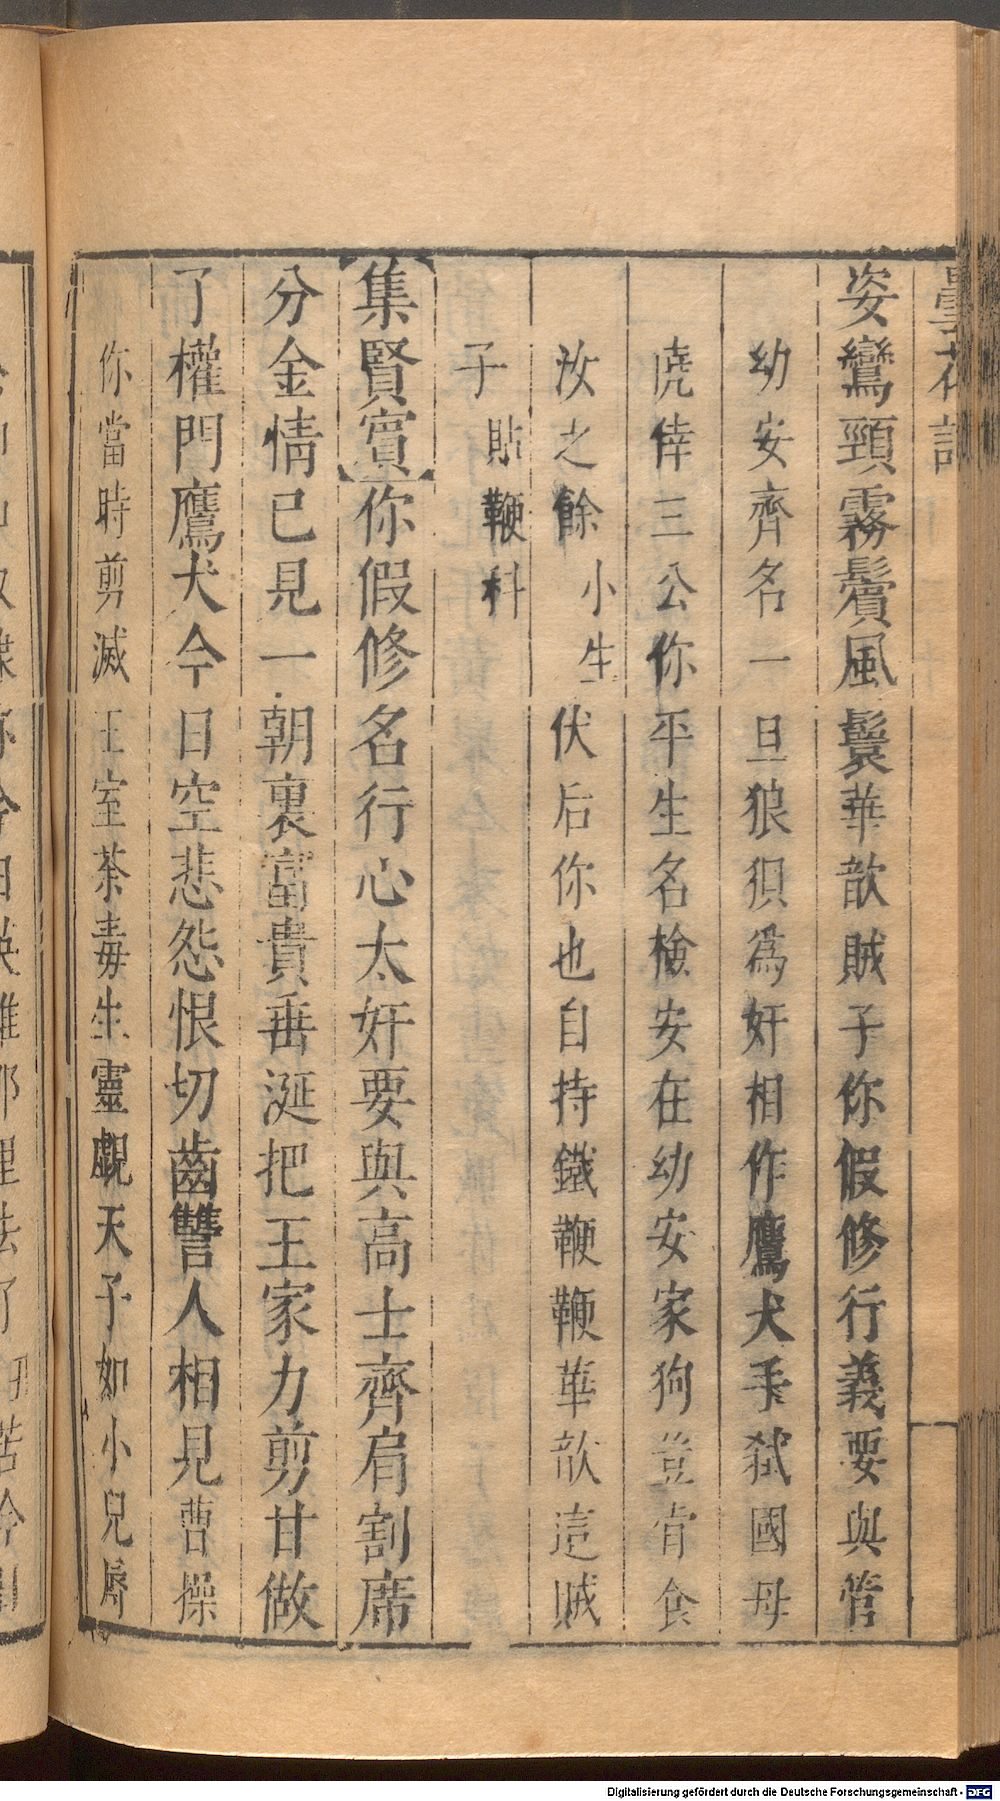 曇花記
姿鸞頸霧鬢風鬟華歆賊子你假修行義要與管
幼安齊名一旦狼狽爲奸相作鷹犬手弑國母
倖三公你平生名檢安在幼安家狗豈肯食
汝之餘小生伏后你也自持鐵鞭鞭華歆這賊
子貼鞭科
集賢賓你假修名行心太奸要與高士齊肩割席
分金情已見一朝裏富貴垂涎把王家力剪甘做
了權門鷹犬今日空悲怨恨切齒讐人相見曹操
你當時剪滅王室荼毒生靈覷天子如小兒辱
Digitalisierung gefördert durch die Deutsche Forschungsgemeinschaft - DFG